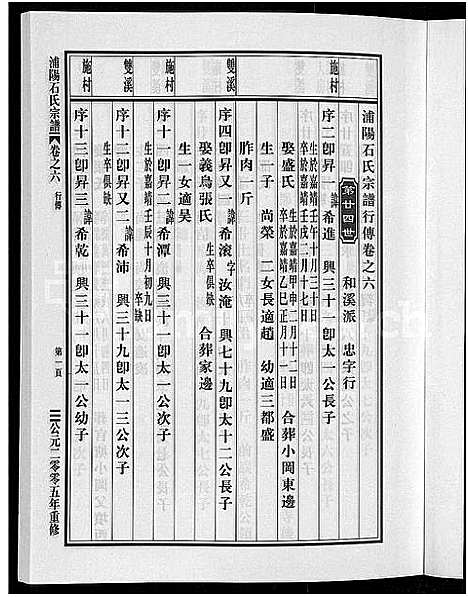 浦陽石氏宗譜行傳卷之六
第廿四世
和溪派　忠字行
施村
序二卽昇一諱希進　興三十一卽太一公長子
生於嘉靖壬午十月三十日
卒於嘉靖壬戌二月十七日
娶盛氏
生嘉靖甲申二月十二日
卒於嘉靖乙巳正月十一日
合葬小岡東邊
生一子　尚榮　二女長適趙　幼適三都盛
胙肉一斤
雙溪
序四卽昇又一諱希滚字汝淹　興七十九卽太十二公長子
娶義烏張氏
生卒俱缺
合葬家邊
生一女適吳
施村
序十一卽昇二諱希潭　興三十一卽太一公次子
生於嘉靖壬辰十月初九日
卒缺
雙溪
序十二卽昇又二諱希沛　興三十九卽太一三公次子
生卒俱缺
施村
序十三卽昇三諱希乾　興三十一卽太一公幼子
浦陽石氏宗譜
卷之六
行傳
第一頁
公元二〇〇五年重修